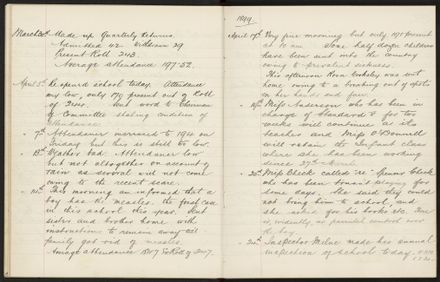 March 30th Made up Quarterly Returns.
Admitted 42 Withdrawn 29
Present Roll 243
Average attendance 197.52
April 5th Re opened school today. Attendance
very low, only 170 present out of Roll
of 244. Sent word to Chairman
of Committee stating condition of
attendance
" 7th Attendance increased to 194 on
Friday but is still too low.
" 13th Weather bad. Attendance low
but not altogether on account of
rain as several will not come
owing to the recent scare.
" 14th This morning am informed that a
boy has the measles. the first case
in this school this year. Sent
sister and brother home with
instructions to remain away till
family got rid of measles.
Average attendance for Roll of 247.
1899
April 17th Very fine morning but only 195 present
at 10 am. Some half dozen children
have been sent into the country
owing to prevalent sickness.
This afternoon Rosa was sent
home owing to a breaking out of spots
on her hands and face.
" 19th Miss Anderson who has been in
change of Standard I for two
weeks will continue as its
teacher and Miss O'Donnell
will retain the Infant class
where she has been working
since 27th March.
" 20th Mrs Cheek called "re" Cheek
who has been truant playing for
some days. She said they could
not bring him to school, and
she asked for his books etc. There
is, evidently, no parental control over
the boy.
" 24th Inspector Milne made his annual
inspection of school today.